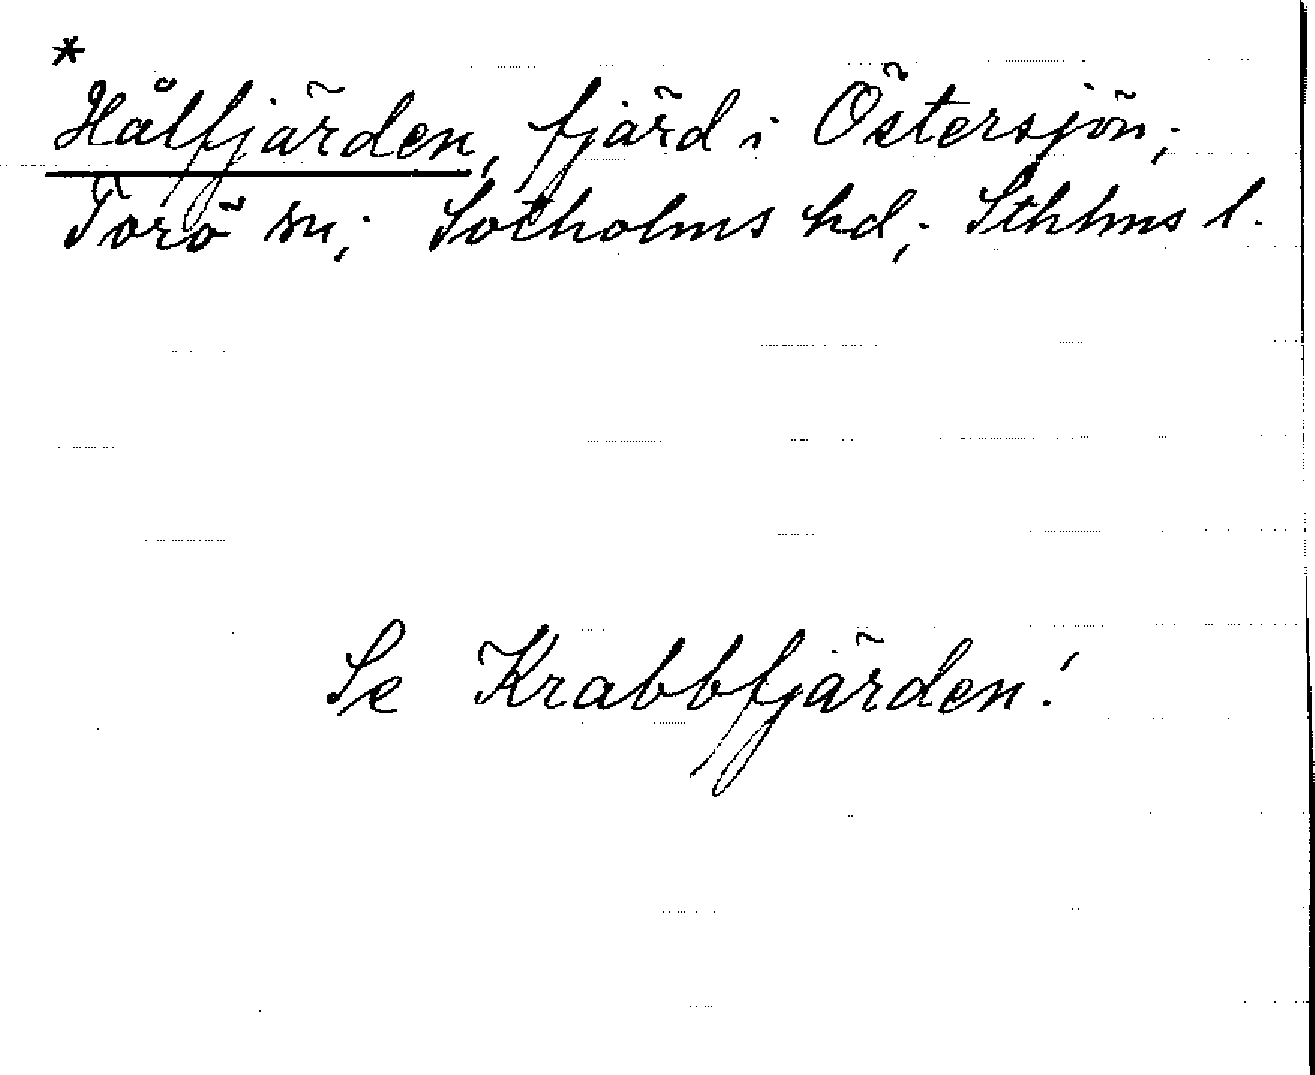 *
Hålfjärden, fjärd i Östersjön;
Torö sn; Sotholms hd; Sthlms l.
Se Krabbfjärden!